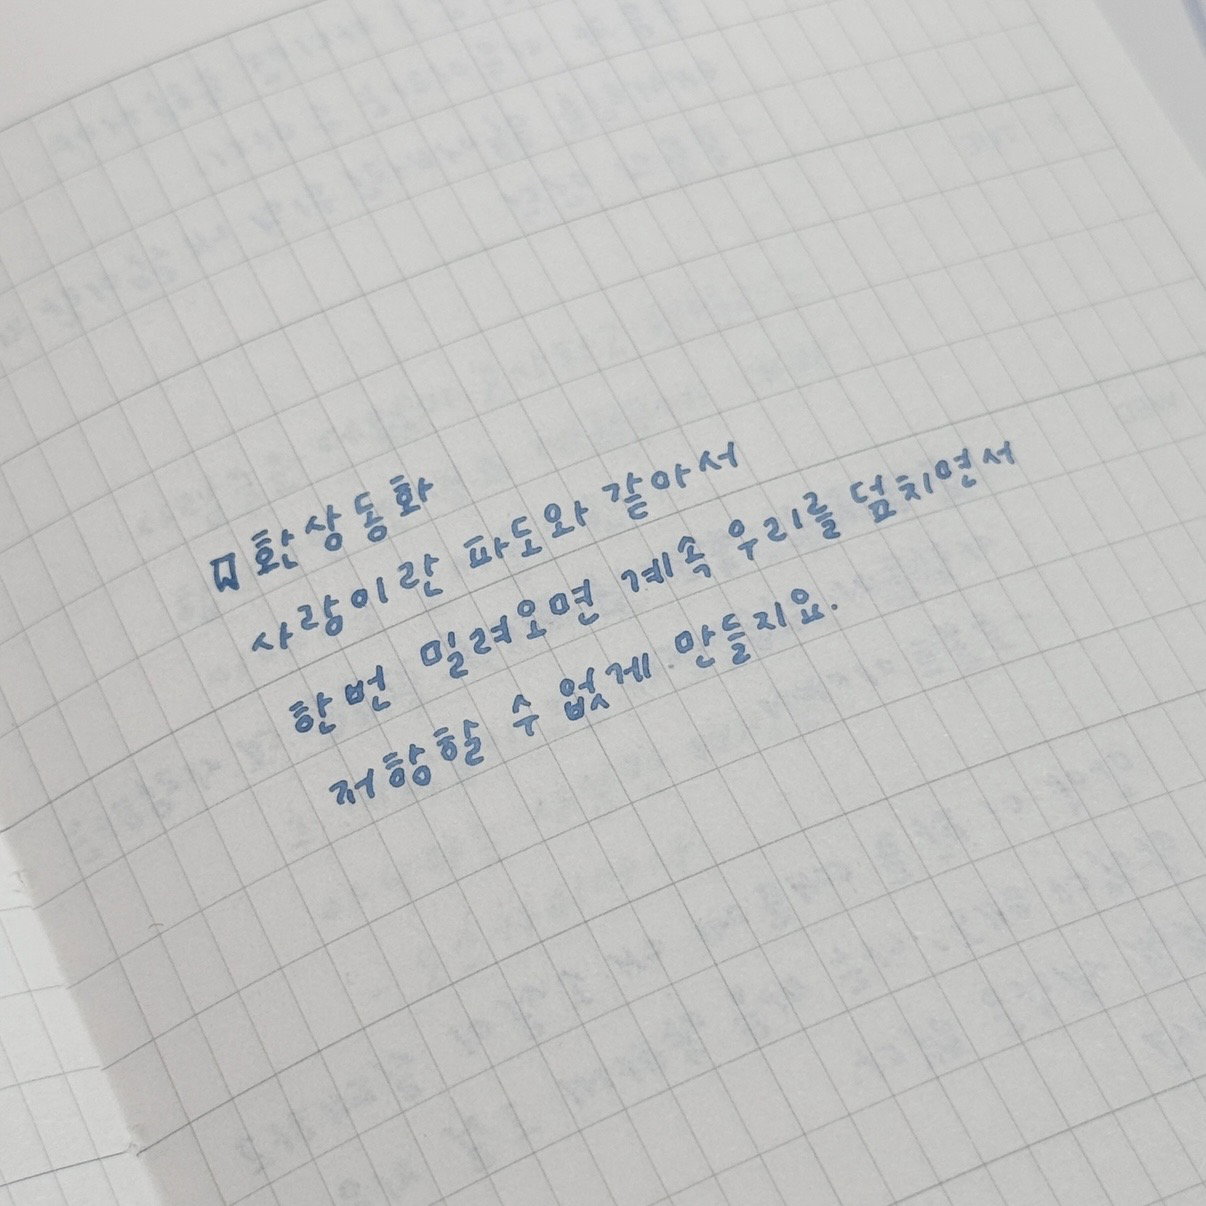 환상동화
사랑이란 파도와 같아서
한번 밀려오면 계속 우리를 덮치면서
저항할 수 없게 만들지요.